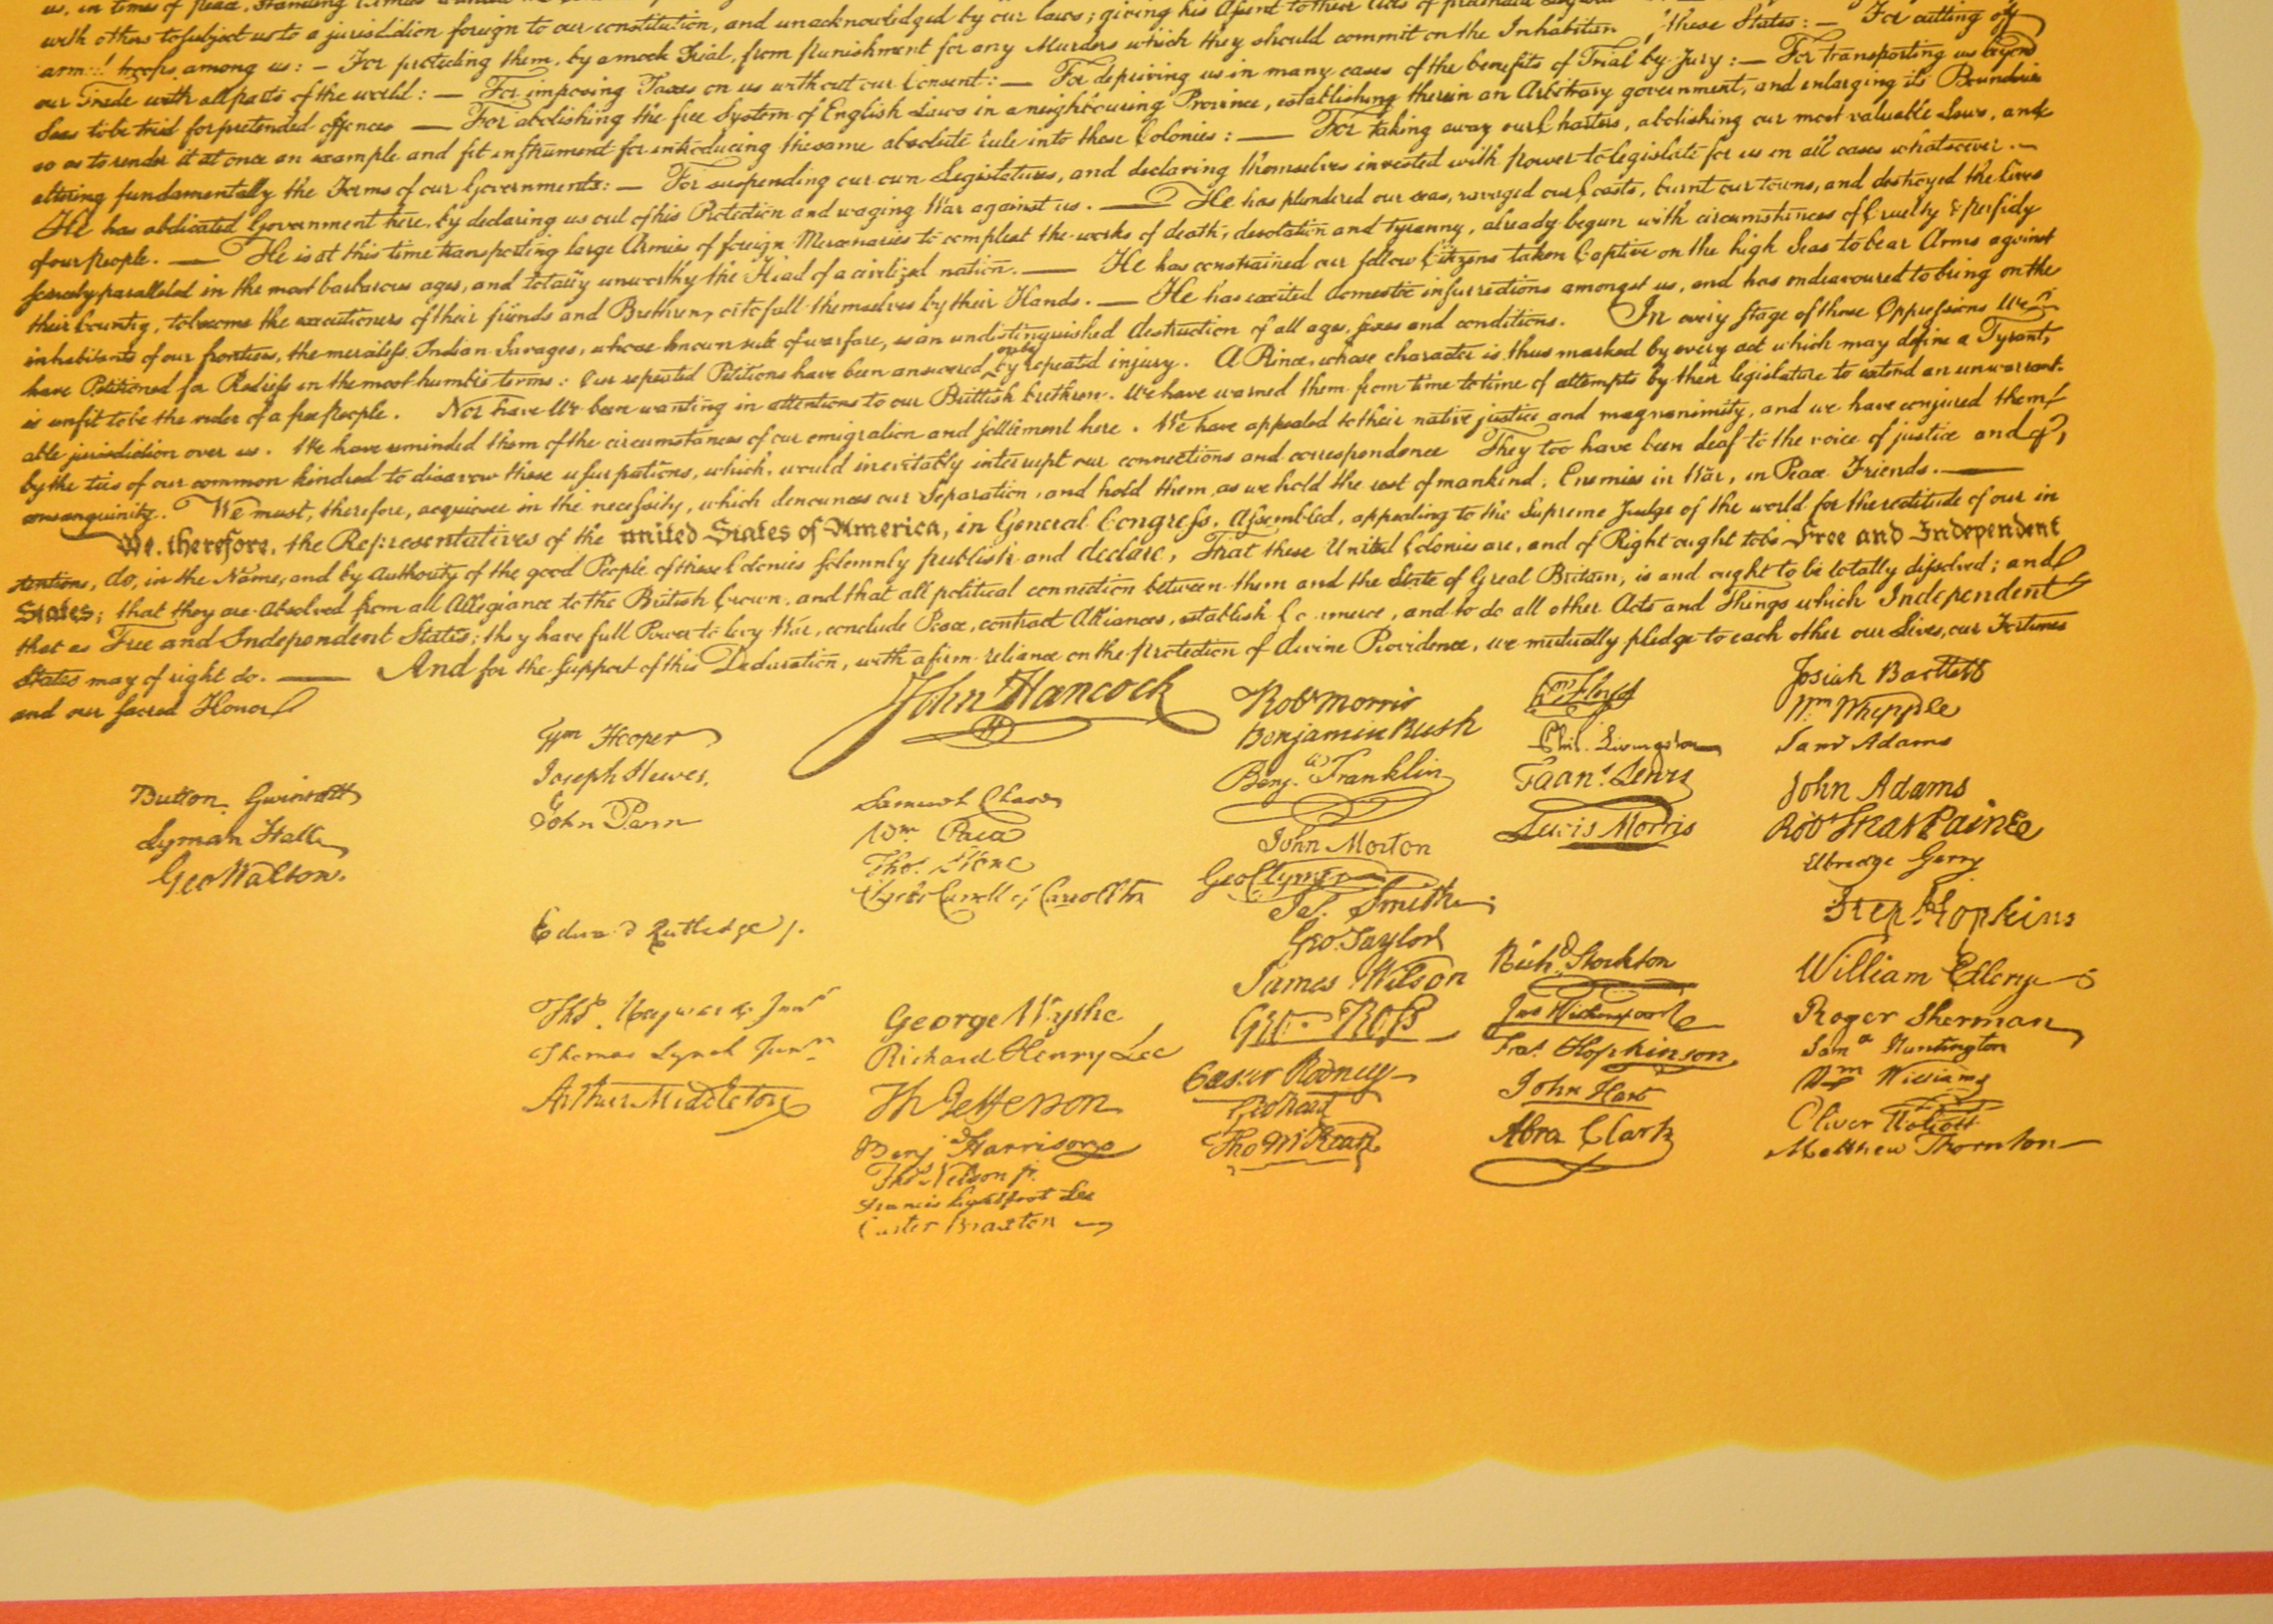 us, in times of peace, Standing Armies
with others to subject us to a jurisdiction foreign to our constitution, and unacknowledged by our laws; giving his Assent to their Acts of
armed troops among us: — For protecting them, by a mock Trial, from punishment for any Murders which they should commit on the Inhabitan these States: — For cutting off
our Trade with all parts of the world: — For imposing Taxes on us without our Consent: — For depriving us in many cases of the benefits of Trial by Jury: — For transporting us beyond
Seas to be tried for pretended offences — For abolishing the free System of English Laws in a neighbouring Province, establishing therein an Arbitrary government, and enlarging its Boundaries
so as to render it at once an example and fit instrument for introducing the same absolute rule into these Colonies: — For taking away our Charters, abolishing our most valuable Laws, and
altering fundamentally the Forms of our Governments: — For suspending our own Legislatures, and declaring themselves invested with power to legislate for us in all cases whatsoever. —
He has abdicated Government here, by declaring us out of his Protection and waging War against us. — He has plundered our seas, ravaged our Coasts, burnt our towns, and destroyed the lives
of our people. — He is at this time transporting large Armies of foreign Mercenaries to compleat the works of death, desolation and tyranny, already begun with circumstances of Cruelty & perfidy
scarcely paralleled in the most barbarous ages, and totally unworthy the Head of a civilized nation. — He has constrained our fellow Citizens taken Captive on the high Seas to bear Arms against
their Country, to become the executioners of their friends and Brethren, or to fall themselves by their Hands. — He has excited domestic insurrections amongst us, and has endeavoured to bring on the
inhabitants of our frontiers, the merciless Indian Savages, whose known rule of warfare, is an undistinguished destruction of all ages, sexes and conditions. In every stage of these Oppressions We
have Petitioned for Redress in the most humble terms: Our repeated Petitions have been answered only by repeated injury. A Prince, whose character is thus marked by every act which may define a Tyrant,
is unfit to be the ruler of a free People. Nor have We been wanting in attentions to our Brittish brethren. We have warned them from time to time of attempts by their legislature to extend an unwarrant-
able jurisdiction over us. We have reminded them of the circumstances of our emigration and settlement here. We have appealed to their native justice and magnanimity, and we have conjured them
by the ties of our common kindred to disavow these usurpations, which, would inevitably interrupt our connections and correspondence They too have been deaf to the voice of justice and of
consanguinity. We must, therefore, acquiesce in the necessity, which denounces our Separation, and hold them, as we hold the rest of mankind, Enemies in War, in Peace Friends. —
We, therefore, the Representatives of the united States of America, in General Congress, Assembled, appealing to the Supreme Judge of the world for the rectitude of our in
tentions, do, in the Name, and by Authority of the good People of these Colonies, solemnly publish and declare, That these United Colonies are, and of Right ought to be Free and Independent
States; that they are Absolved from all Allegiance to the British Crown, and that all political connection between them and the State of Great Britain, is and ought to be totally dissolved; and
that as Free and Independent States, they have full Power to levy War, conclude Peace, contract Alliances, establish Commerce, and to do all other Acts and Things which Independent
States may of right do. — And for the support of this Declaration, with a firm reliance on the protection of divine Providence, we mutually pledge to each other our Lives, our Fortunes
and our sacred Honor
Button Gwinnett
Lyman Hall
Geo Walton.
Wm Hooper
Joseph Hewes,
John Penn
Edward Rutledge /.
Thos. Heyward Junr
Thomas Lynch Junr
Arthur Middleton
John Hancock
Samuel Chase
Wm. Paca
Thos. Stone
Charles Carroll of Carrollton
George Wythe
Richard Henry Lee
Th Jefferson
Benj Harrison
Thos Nelson jr.
Francis Lightfoot Lee
Carter Braxton
Robt Morris
Benjamin Rush
Benj. Franklin
John Morton
Geo Clymer
Jas. Smith.
Geo. Taylor
James Wilson
Geo. Ross
Caesar Rodney
Geo Read
Tho M:Kean
Wm Floyd
Phil. Livingston
Frans. Lewis
Lewis Morris
Richd. Stockton
Jno Witherspoon
Fras. Hopkinson
John Hart
Abra Clark
Josiah Bartlett
Wm Whipple
Saml Adams
John Adams
Robt Treat Paine
Elbridge Gerry
Step. Hopkins
William Ellery
Roger Sherman
Saml Huntington
Wm Williams
Oliver Wolcott
Matthew Thornton